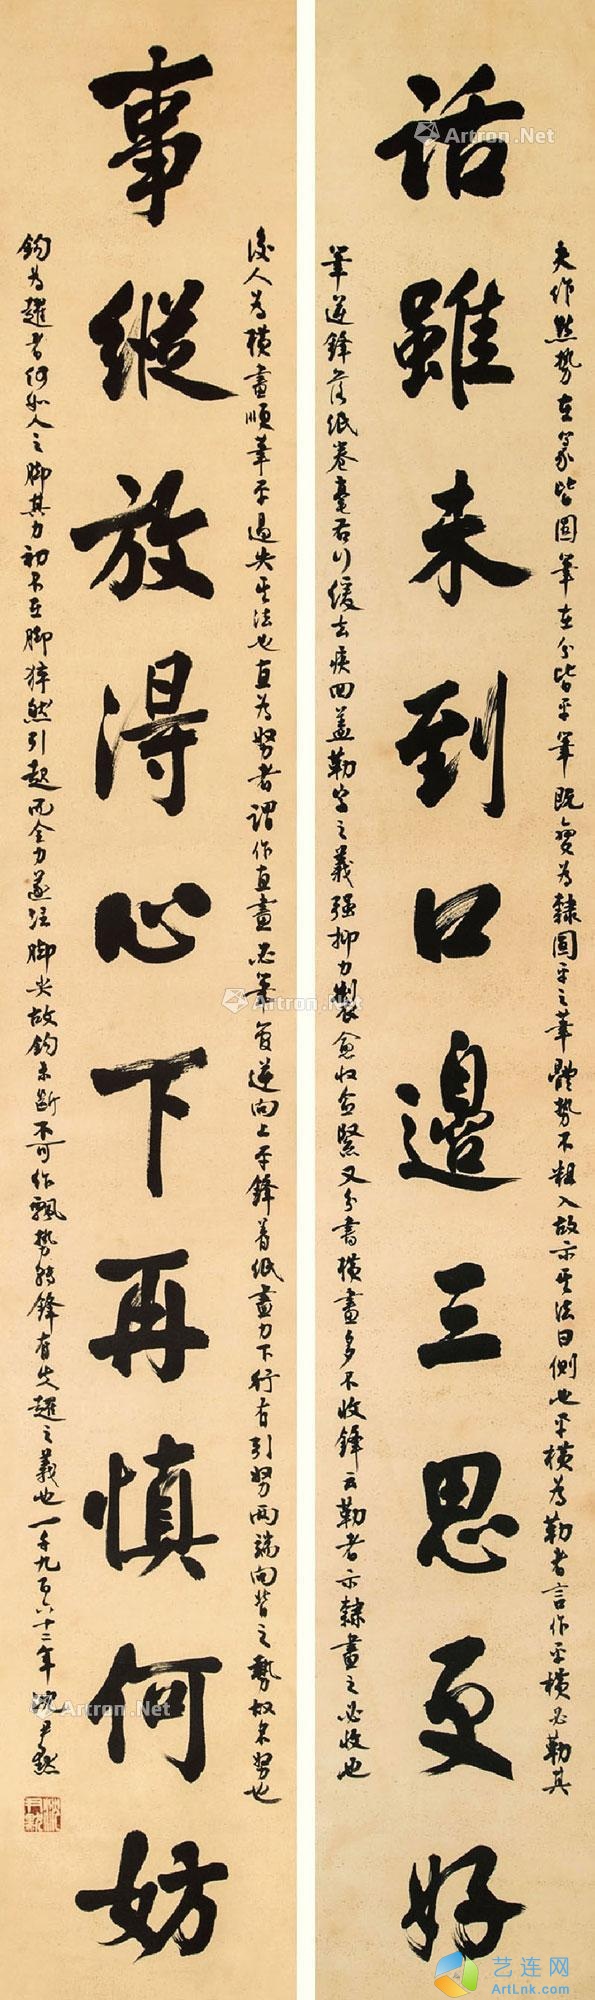 話雖未到口邊三思更好
夫作點勢在篆皆圓筆在分皆平筆既變為隸圓平之筆體勢不相入故示其法曰側也平橫為勒者言作平橫必勒其
筆逆鋒落紙卷毫右行緩去疾回蓋勒字之義强抑力製愈收愈緊又分書橫畫多不收鋒云勒者示隸畫之必收也
事縱放得心下再慎何妨
後人為橫畫順筆平過失其法也直為努者謂作直畫必筆管逆向上平鋒着紙盡力下行有引努兩端向背之勢故名努也
鈎為趯者何如人之脚其力初不在脚猝然引起而全力遂注脚尖故鈎末斷不可作飄勢挫鋒有失趯之義也一千九百六十二年沈尹默
Artron.Net
艺连网
ArtLnk.com